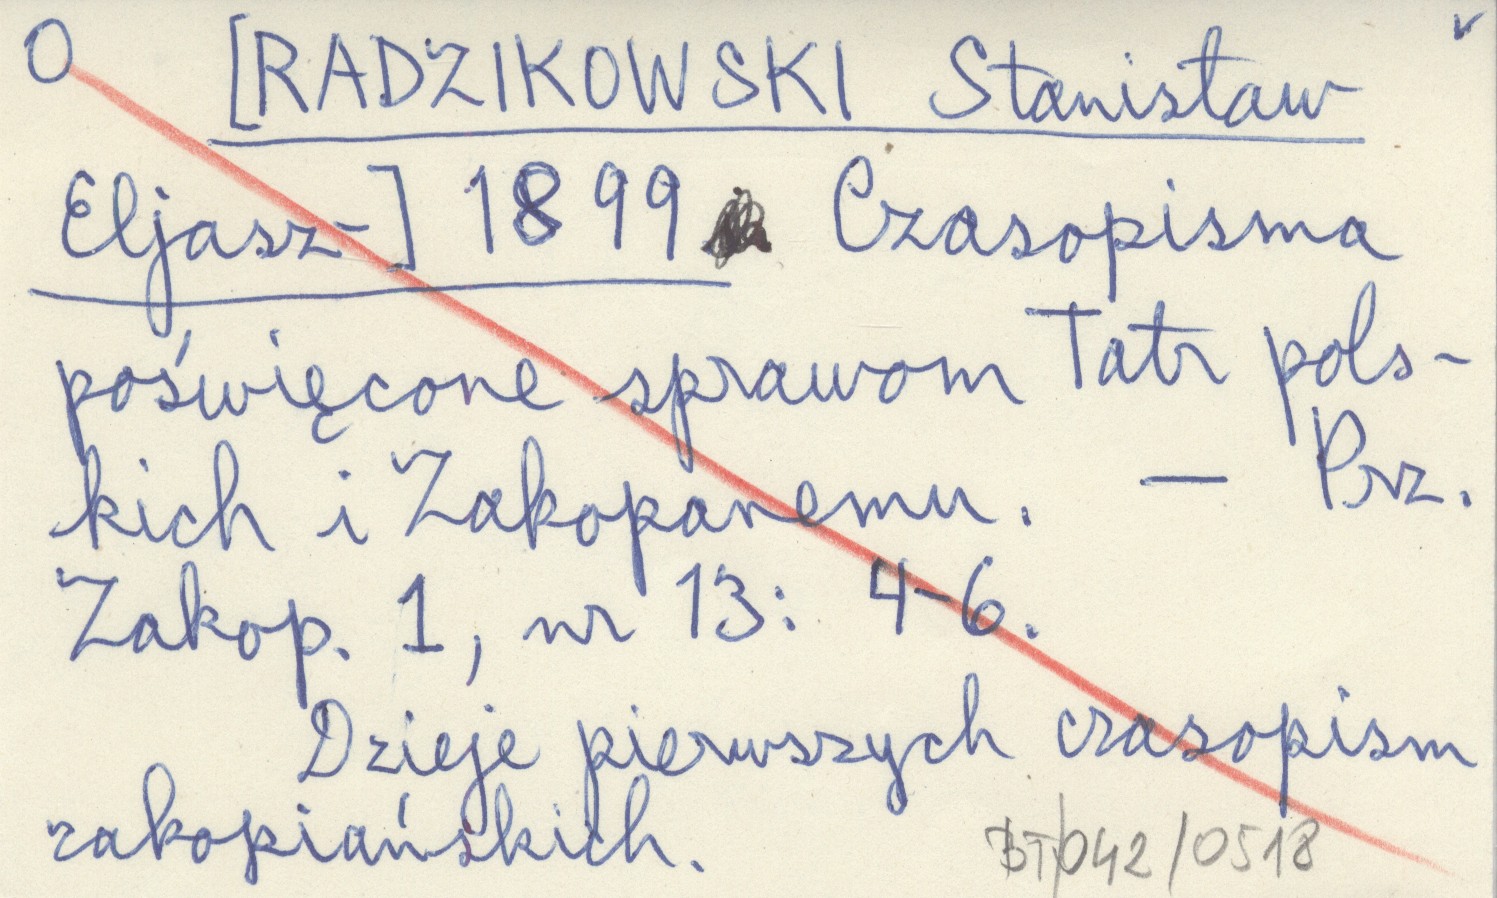 O [RADZIKOWSKI Stanisław
Eljasz-] 1899 Czasopisma
poświęcone sprawom Tatr pols-
kich i Zakopanemu. — Prz.
Zakop. 1, nr 13: 4-6.
Dzieje pierwszych czasopism
zakopiańskich.
BT/042/0518